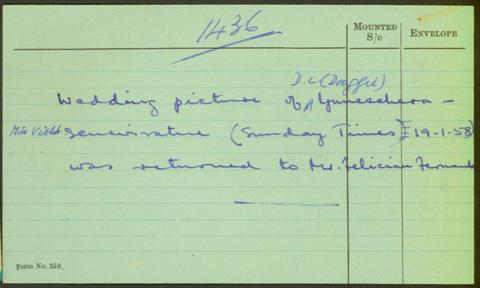 1436
MOUNTED S/c
ENVELOPE
D. L (Duggie)
Wedding picture of Guneschera -
Miss Violet Seneviratne (Sunday Times 19-1-58)
was returned to Mr. Felician Fernando
Form No. 259.